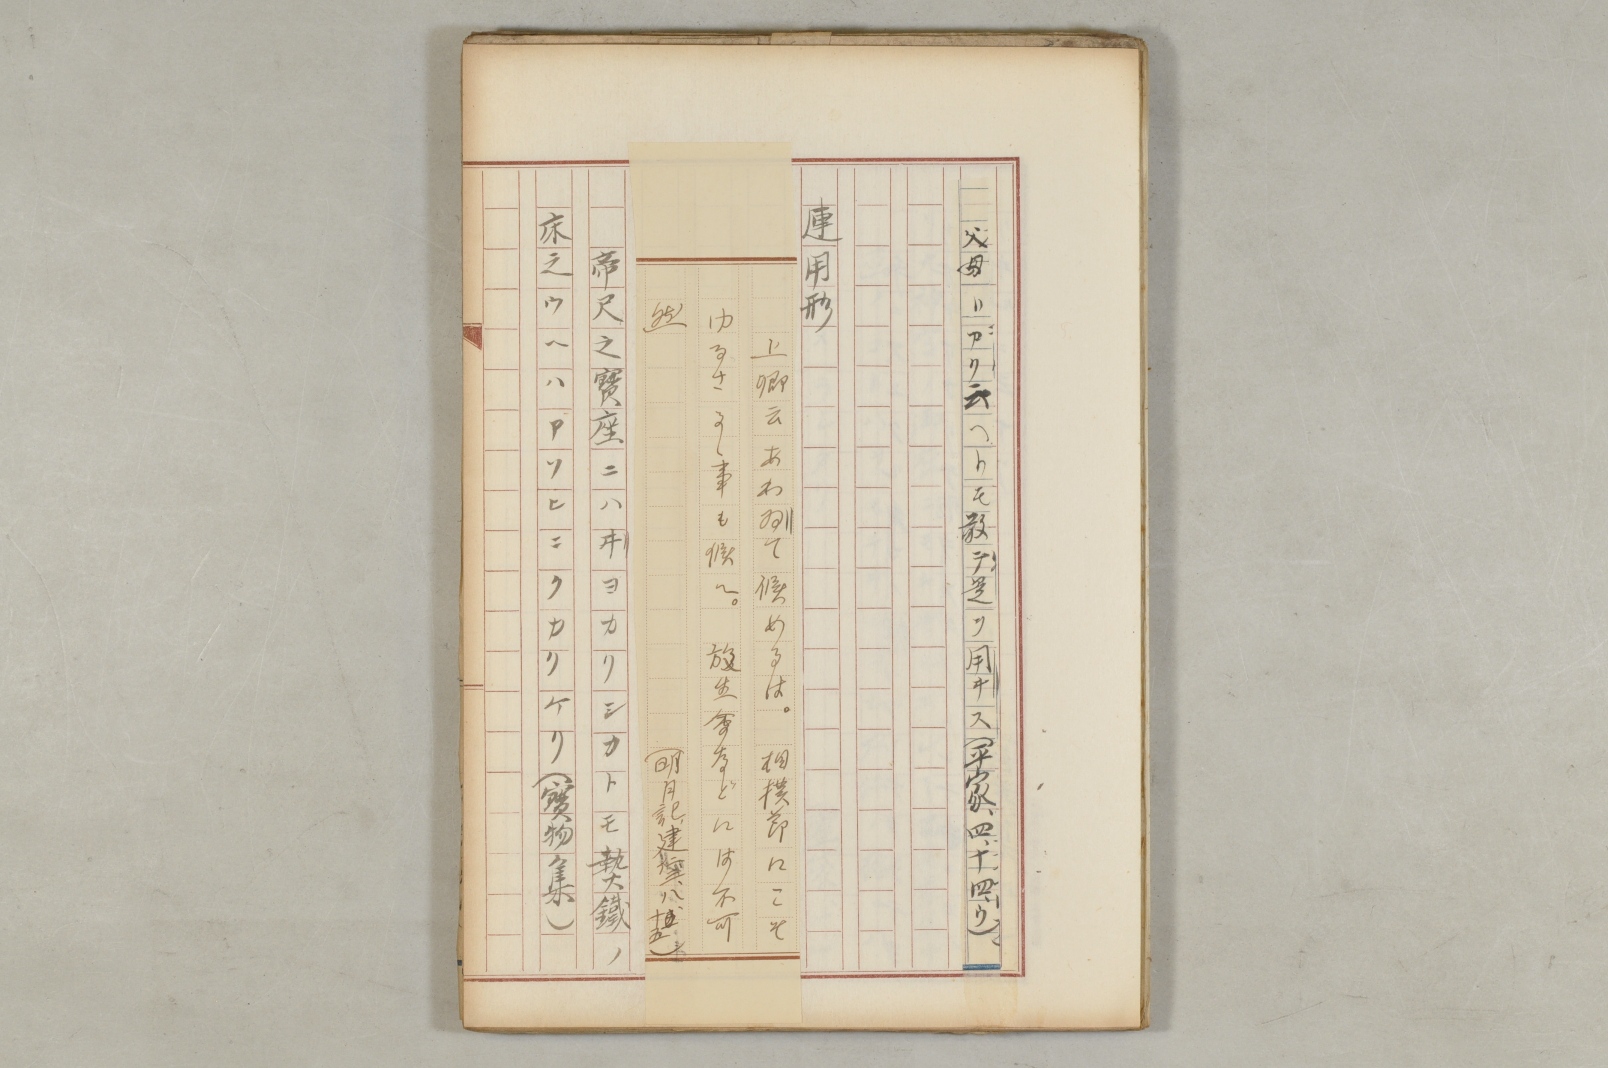 父母リガリ云ヘトモ敢テ是ヲ用ヰス(平家、四、十四、ウ)
連用形
上卿云あわ
て候めるは。相撲節にこそ
ゆるさるゝ事も候へ。放生會などには不可
然(明月記、建暦、八、十五)
帝尺之寶座ニハヰヨカリシカトモ熱鐵ノ
床之ウヘハアソヒニクカリケリ(寶物集)